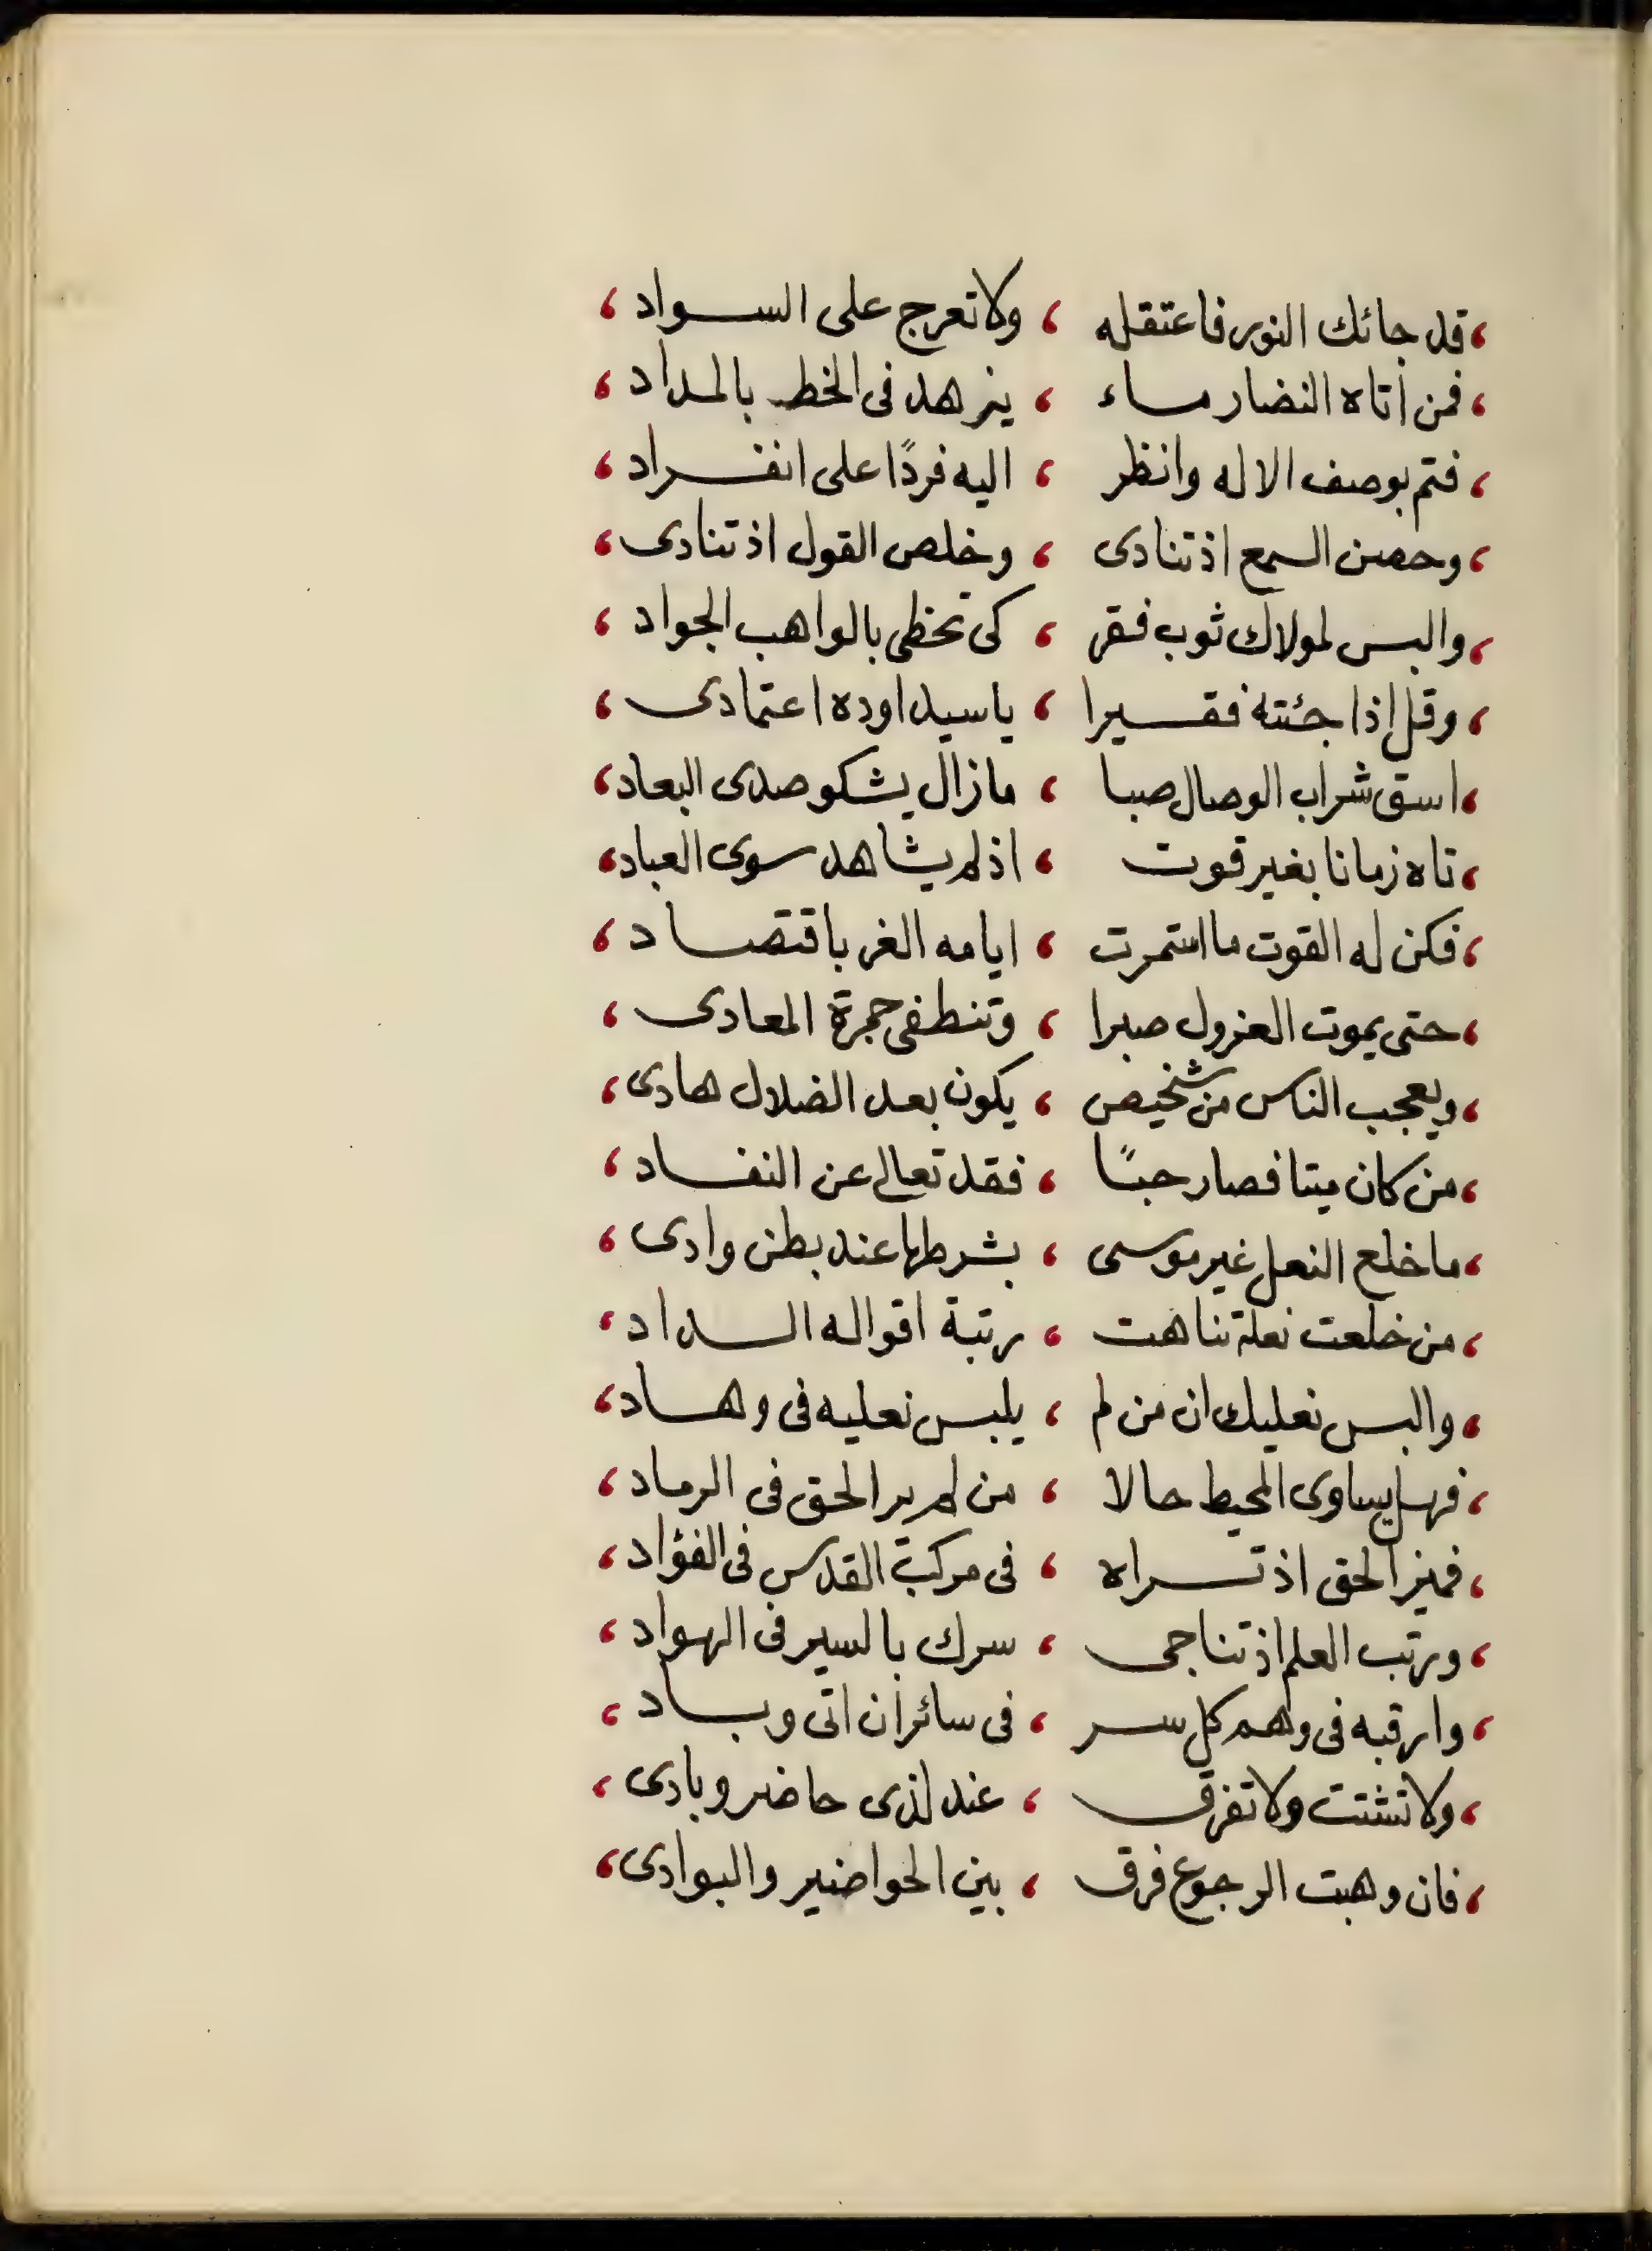 ، قد جائك النور فاعتقله ، ولا تعرج على السواد ،
، فمن أتاه النضار ماء ، يزهد في الخط بالمداد ،
، فتم بوصف الاله وانظر ، اليه فردًا على انفراد ،
، وحصن السمع اذ تنادى ، وخلص القول اذ تنادى ،
، والبس لمولاك ثوب فقر ، كى تحظى بالواهب الجواد ،
، وقل إذا جئته فقيرا ، يا سيدا وده اعتمادى ،
، اسق شراب الوصال صبا ، ما زال يشكو صدى البعاد ،
، تاه زمانا بغير قوت ، اذ لم يشاهد سوى العباد ،
، فكن له القوت ما استمرت ، ايامه الغر باقتصاد ،
، حتى يموت العزول صبرا ، وتنطفى جمرة المعادى ،
، ويعجب الناس من شخيص ، يكون بعد الضلال هادى ،
، من كان ميتا فصار حبًا ، فقد تعالى عن النفاد ،
، ما خلع النعل غير موسى ، بشرطها عند بطن وادى ،
، من خلعت نعلة تناهت ، رتبة اقواله السداد ،
، والبس نعليك ان من لم ، يلبس نعليه فى وهاد ،
، فهل يساوى المحيط حالا ، من لم ير الحق فى الرماد ،
، فميز الحق اذ تراه ، فى مركب القدس فى الفؤاد ،
، ورتب العلم اذ تناجى ، سرك بالسير فى الهواد ،
، وارقبه فى وهم كل سر ، فى سائر ان اتى وباد ،
، ولا تشتت ولا تفرق ، عند لذى حاضر وبادى ،
، فان وهبت الرجوع فرق ، بين الحواضير والبوادى ،